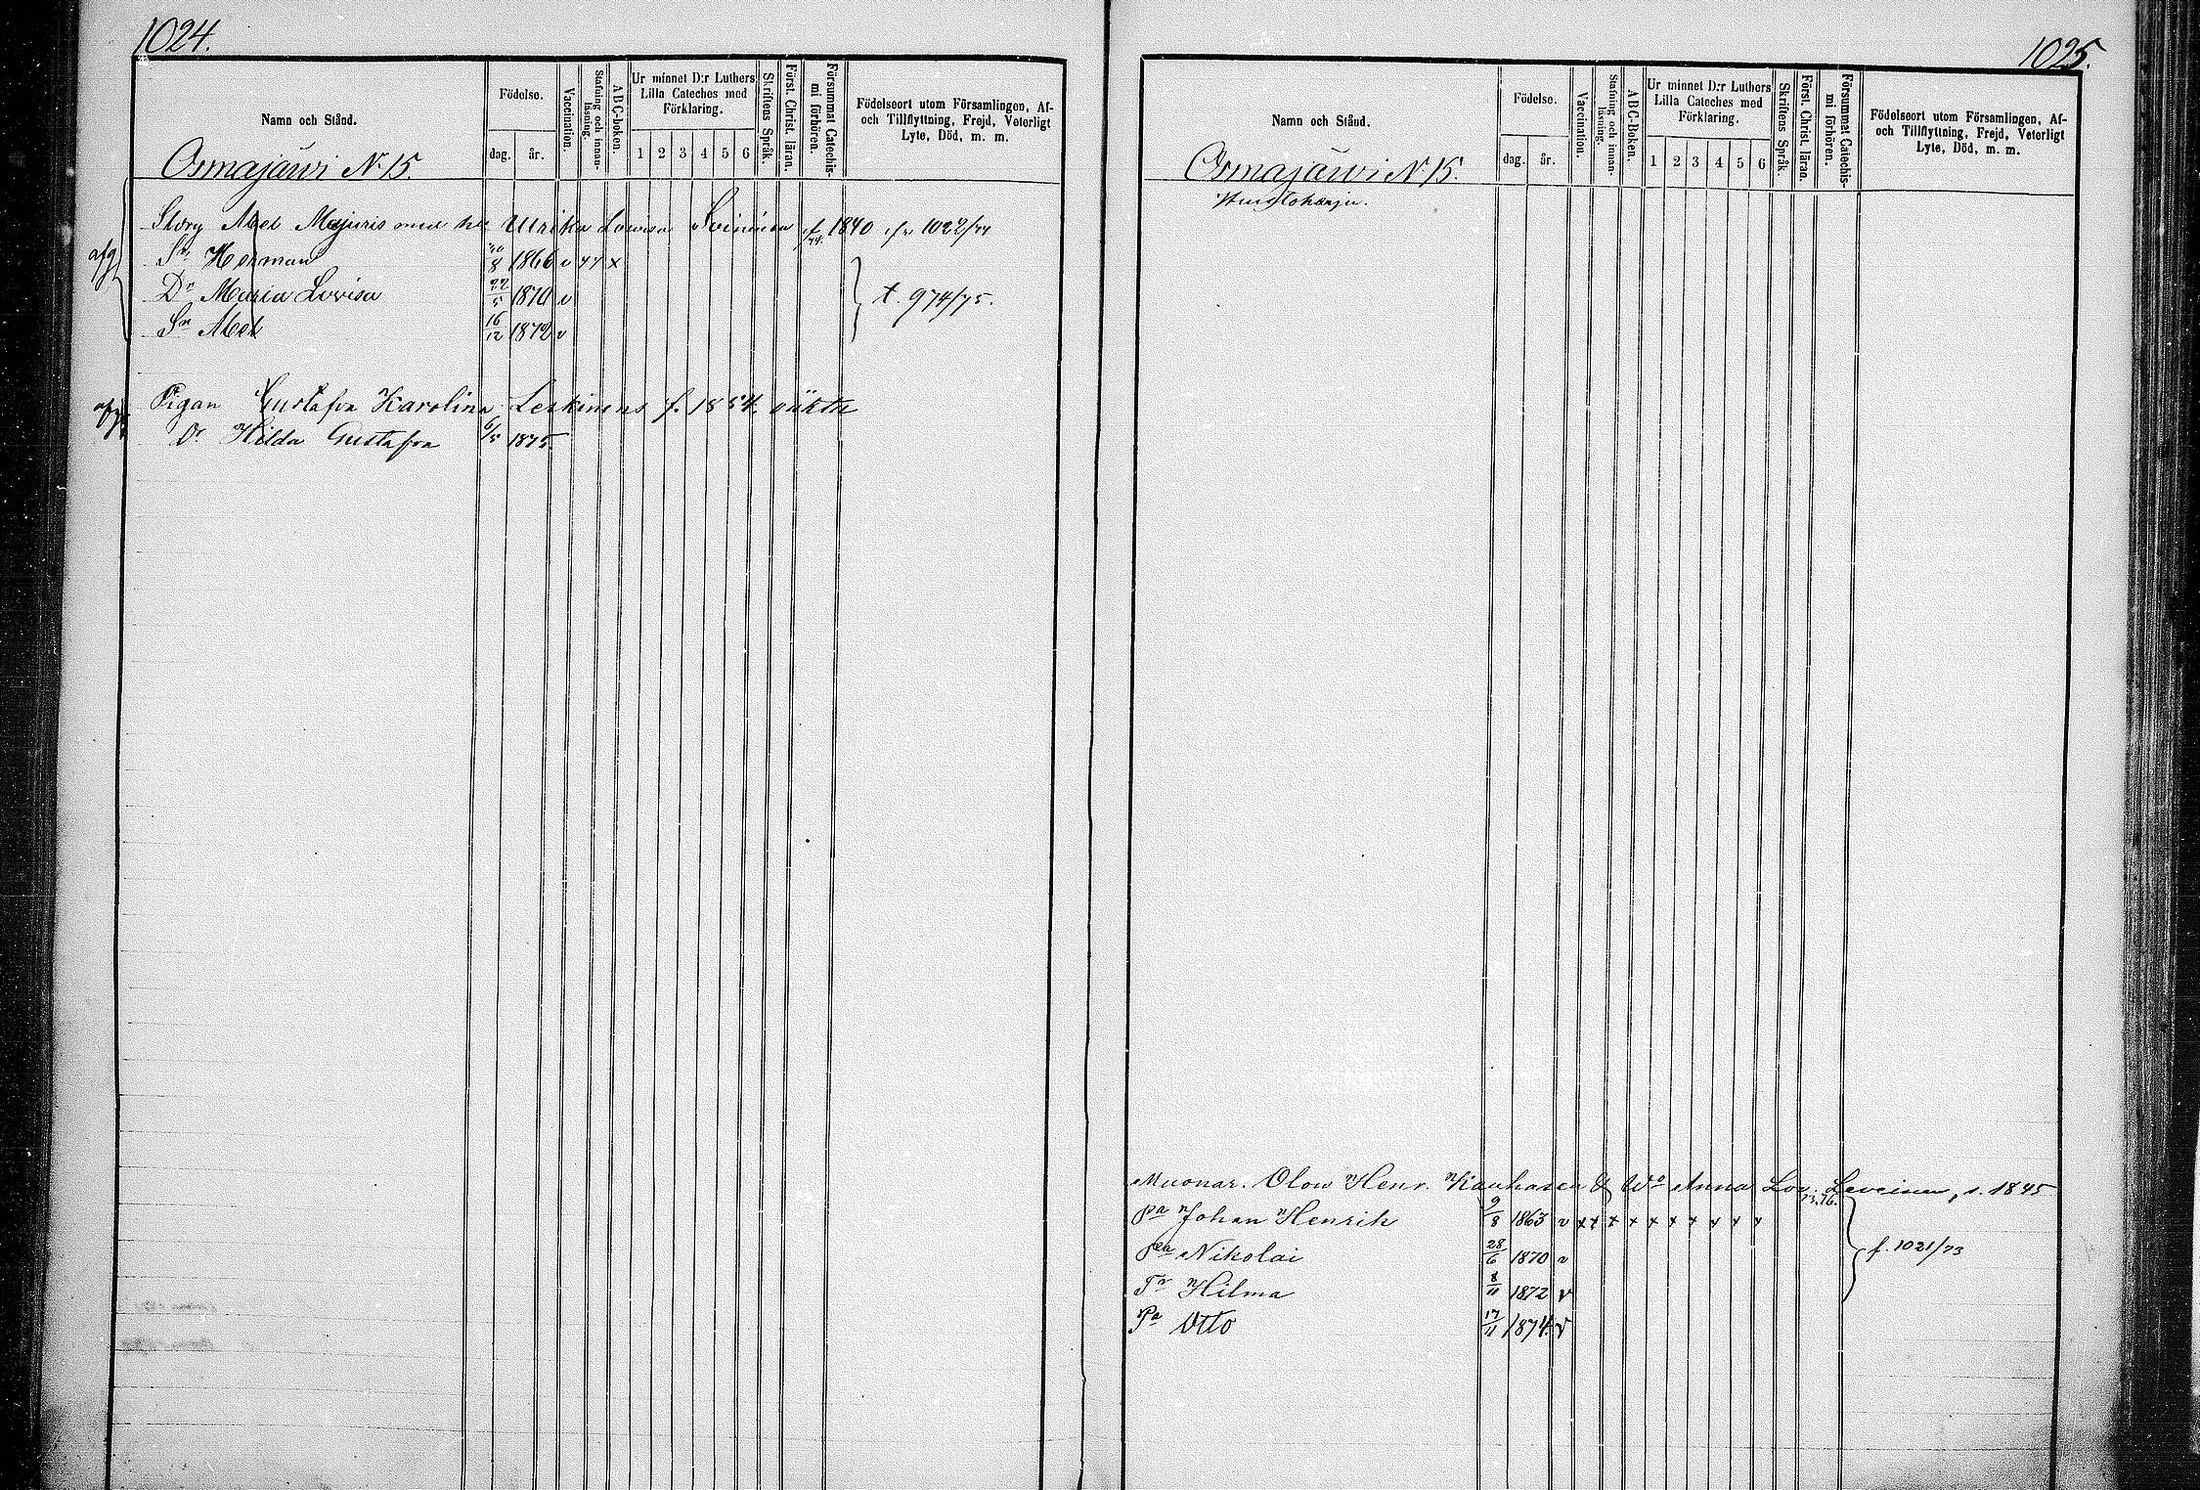 1024.
Namn och Stånd.
Födelse.
dag. år.
Vaccination.
Stafning och innan-läsning.
ABC-boken.
Ur minnet D:r Luthers Lilla Cateches med Förklaring.
1 2 3 4 5 6
Skriftens Språk.
Först. Christ. läran.
Försummat Catechis-mi förhören.
Födelseort utom Församlingen, Af-
och Tillflyttning, Frejd, Veterligt
Lyte, Död, m. m.
Osmajärwi N. 15.
Abel Majuris med Ulrika Lowisa f. 1840 1022/74
afg Sn Herman 8 1866 v x
Dr Maria Lovisa 22/5 1870 v t. 974/75.
Sn Abel 16/12 1872 v
Pigan Gustafva Karolina Leskinens f. 1854. oäkta
Dr Hilda Gustafva 6/5 1875.
1025.
Namn och Stånd.
Födelse.
dag. år.
Vaccination.
Stafning och innan-läsning.
ABC-Boken.
Ur minnet D:r Luthers Lilla Cateches med Förklaring.
1 2 3 4 5 6
Skriftens Språk.
Först. Christ. läran.
Försummat Catechis-mi förhören.
Födelseort utom Församlingen, Af-
och Tillflyttning, Frejd, Veterligt
Lyte, Död, m. m.
Osmajärwi N. 15.
Muonar. Olow Henr. Kauhasen & Wo Anna Lov. s. 1845
Pa Johan Henrik 9/8 1863 v x x x x x x x x x x
Pa Nikolai 28/6 1870 v f. 1021/73
Tr Hilma 8/11 1872 v
Pa Otto 17/11 1874. v